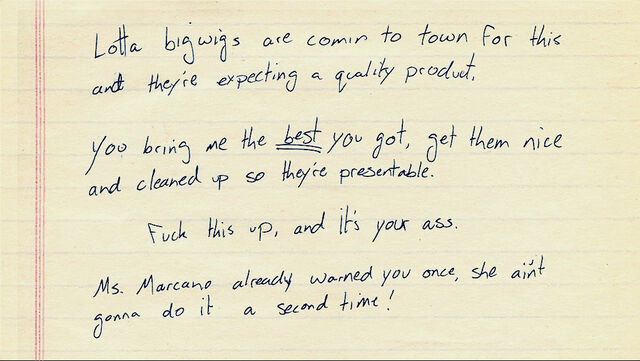 Lotta bigwigs are comin to town for this
and they're expecting a quality product.
You bring me the best you got, get them nice
and cleaned up so they're presentable.
Fuck this up, and it's your ass.
Ms. Marcano already warned you once, she ain't
gonna do it a second time!